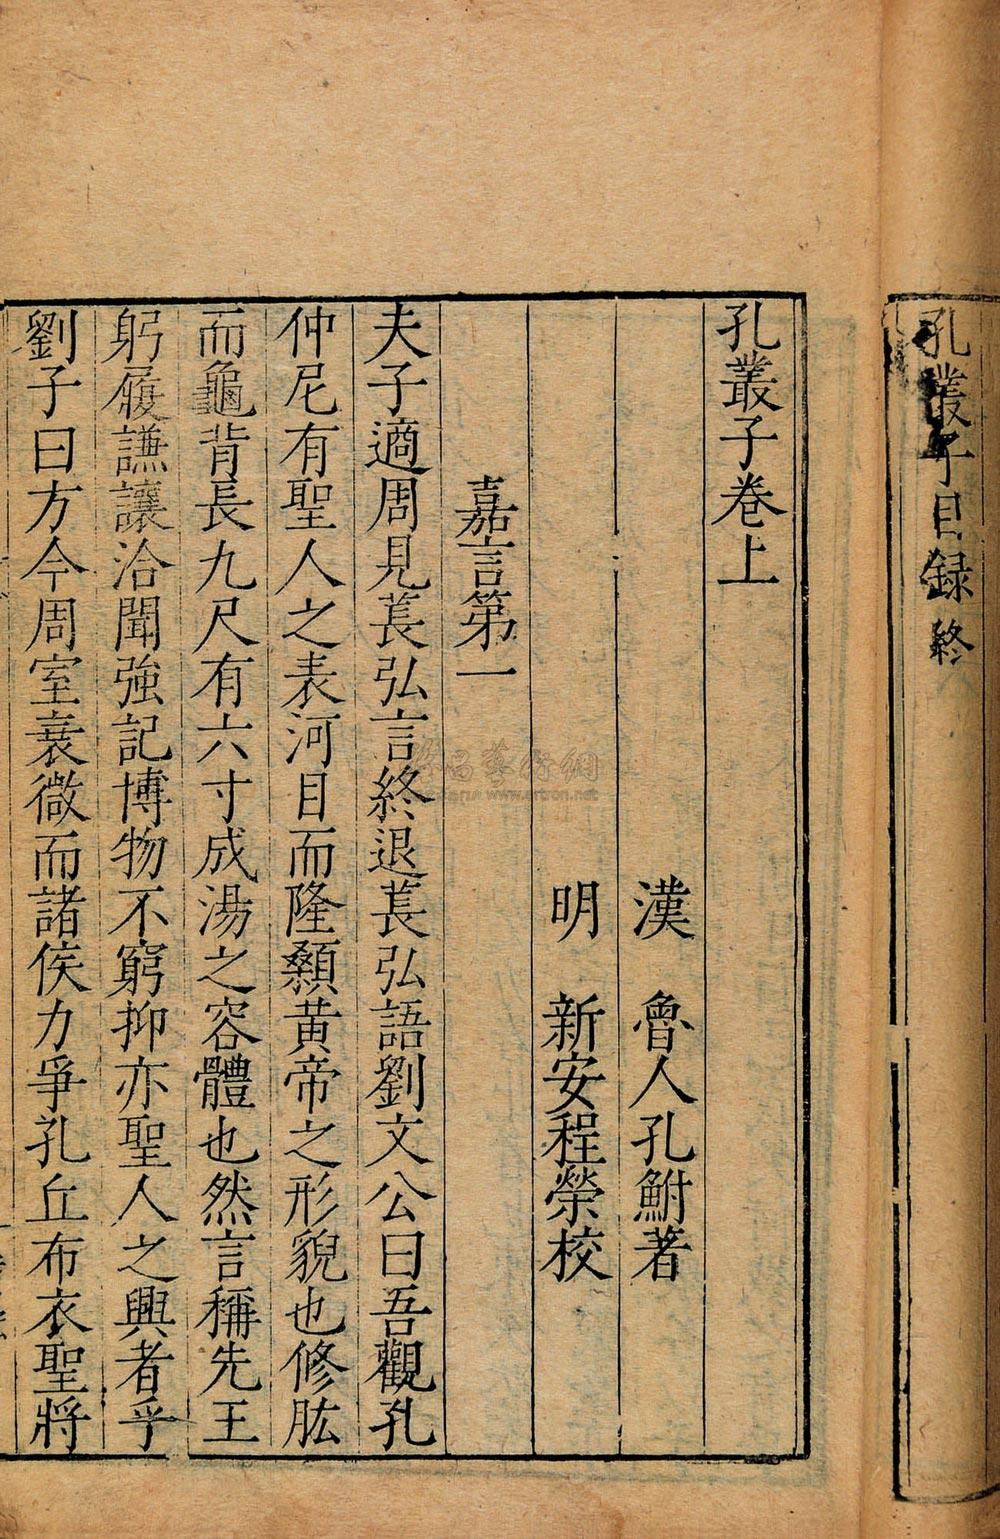 孔叢子目録終
孔叢子卷上
漢　魯人孔鮒著
明　新安程榮校
嘉言第一
夫子適周見萇弘言終退萇弘語劉文公曰吾觀孔
仲尼有聖人之表河目而隆顙黃帝之形貌也修肱
而龜背長九尺有六寸成湯之容體也然言稱先王
躬履謙讓洽聞強記博物不窮抑亦聖人之興者乎
劉子曰方今周室衰微而諸侯力爭孔丘布衣聖將
www.artron.net